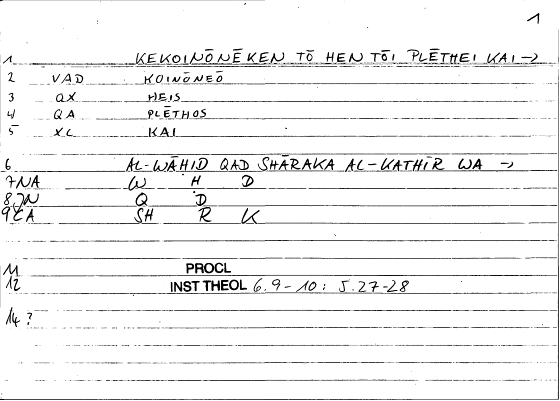 1
1 KEKOINŌNĒKEN TŌ HEN TŌI PLĒTHEI KAI →
2 VAD KOINŌNEŌ
3 QX HEIS
4 QA PLĒTHOS
5 XC KAI
6 AL-WĀḤID QAD SHĀRAKA AL-KATHĪR WA →
7 NA W Ḥ D
8 JN Q D
9 CA SH R K
11 PROCL
12 INST THEOL 6.9-10: 5.27-28
14 ?